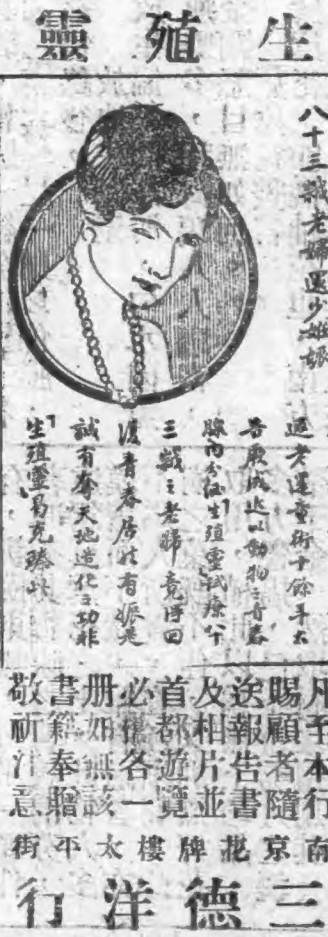 生殖靈
八十三歲老婦還少雌娠
返老還童術十餘年大
告厥成近以動物之青春
腺內分泌生殖靈試療八十
三歲之老婦竟得回
復青春居然有娠是
誠有奪天地造化之功非
「生殖靈」曷克臻此
凡至本行
賜顧者隨
送報告書
及相片並
首都遊覽
必攜各一
册如無該
書籍奉贈
敬祈注意
南京花牌樓太平街
三德洋行